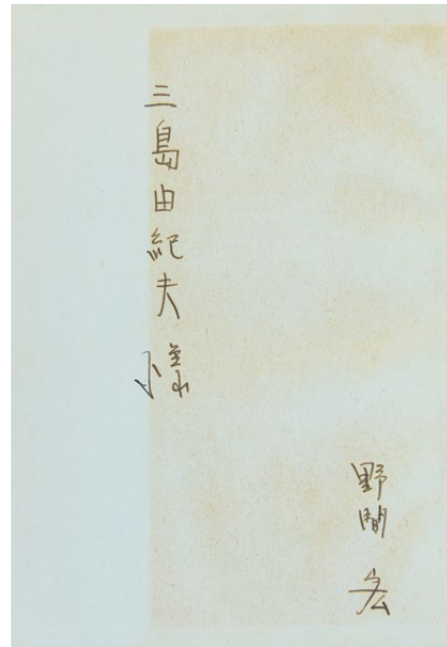 三島由紀夫様
野間宏